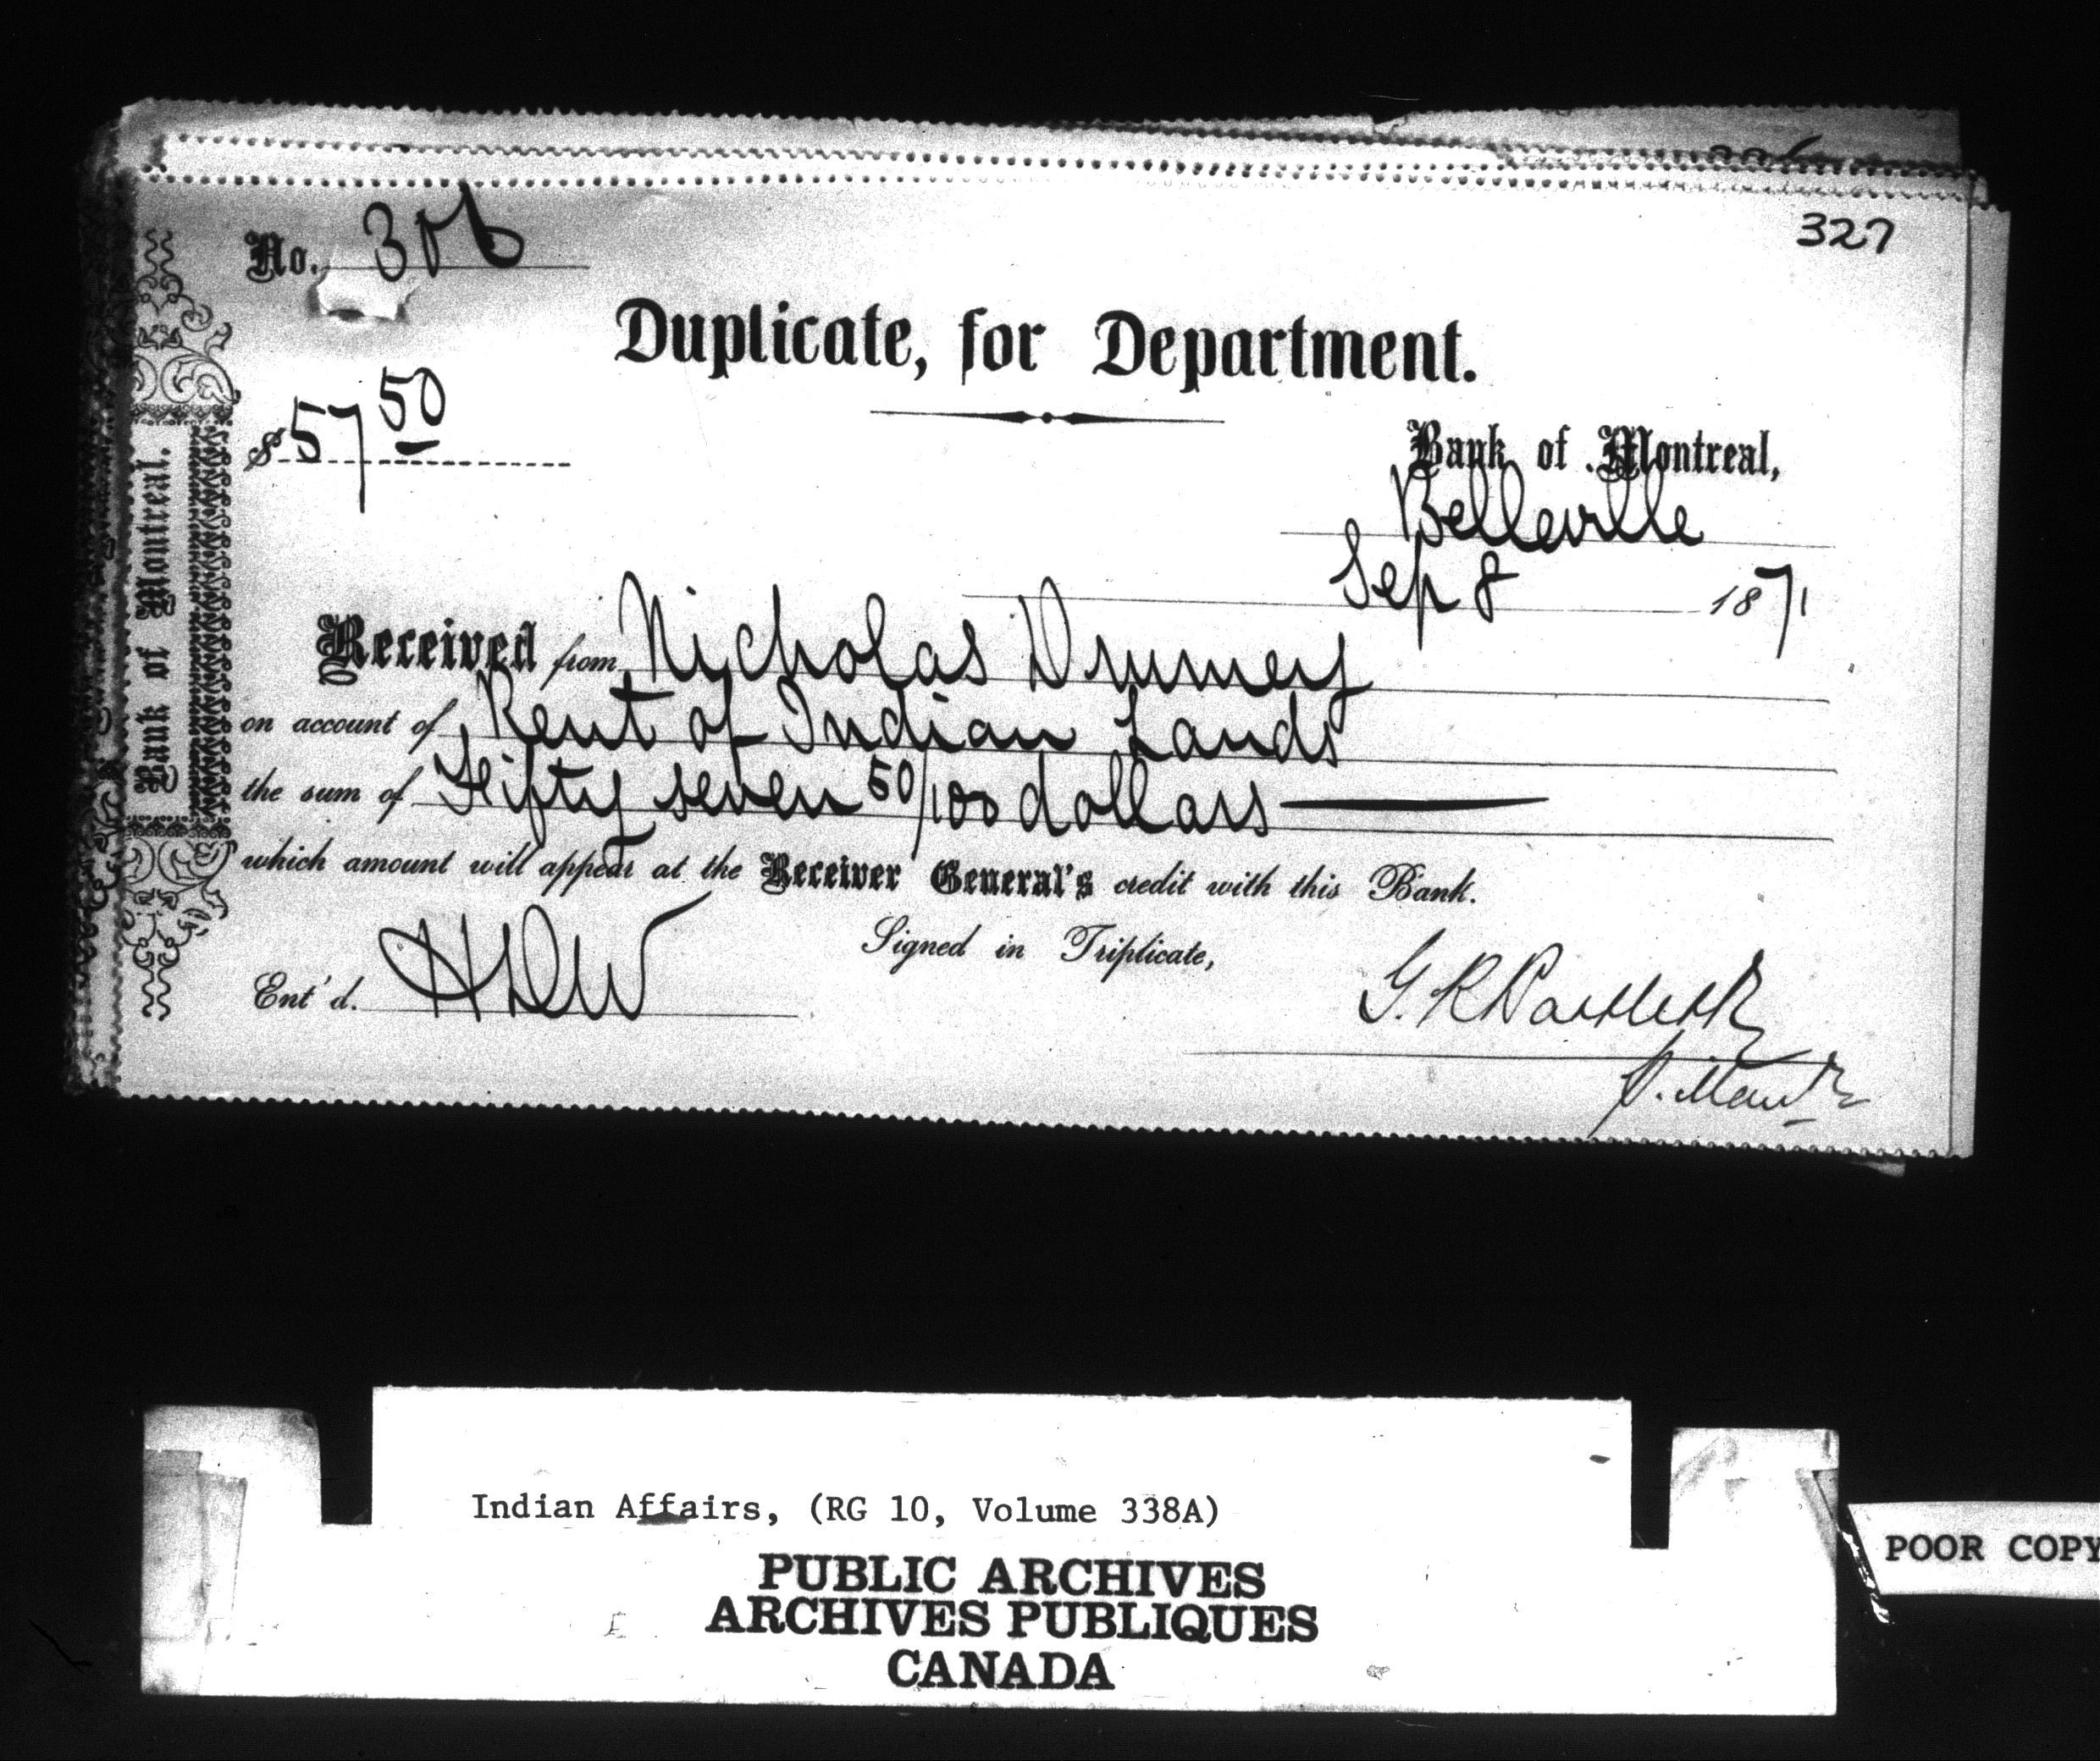 No. 306
327
Duplicate, for Department.
$57 50
Bank of Montreal,
Belleville
Sep 8 1871
Received from Nicholas Drumey
on account of Rent of Indian Lands
the sum of Fifty seven 50/100 dollars
which amount will appear at the Receiver General's credit with this Bank.
Signed in Triplicate,
Ent'd. HDW
G. R Bartlett
Bank of Montreal.
Indian Affairs, (RG 10, Volume 338A)
PUBLIC ARCHIVES
ARCHIVES PUBLIQUES
CANADA
POOR COPY